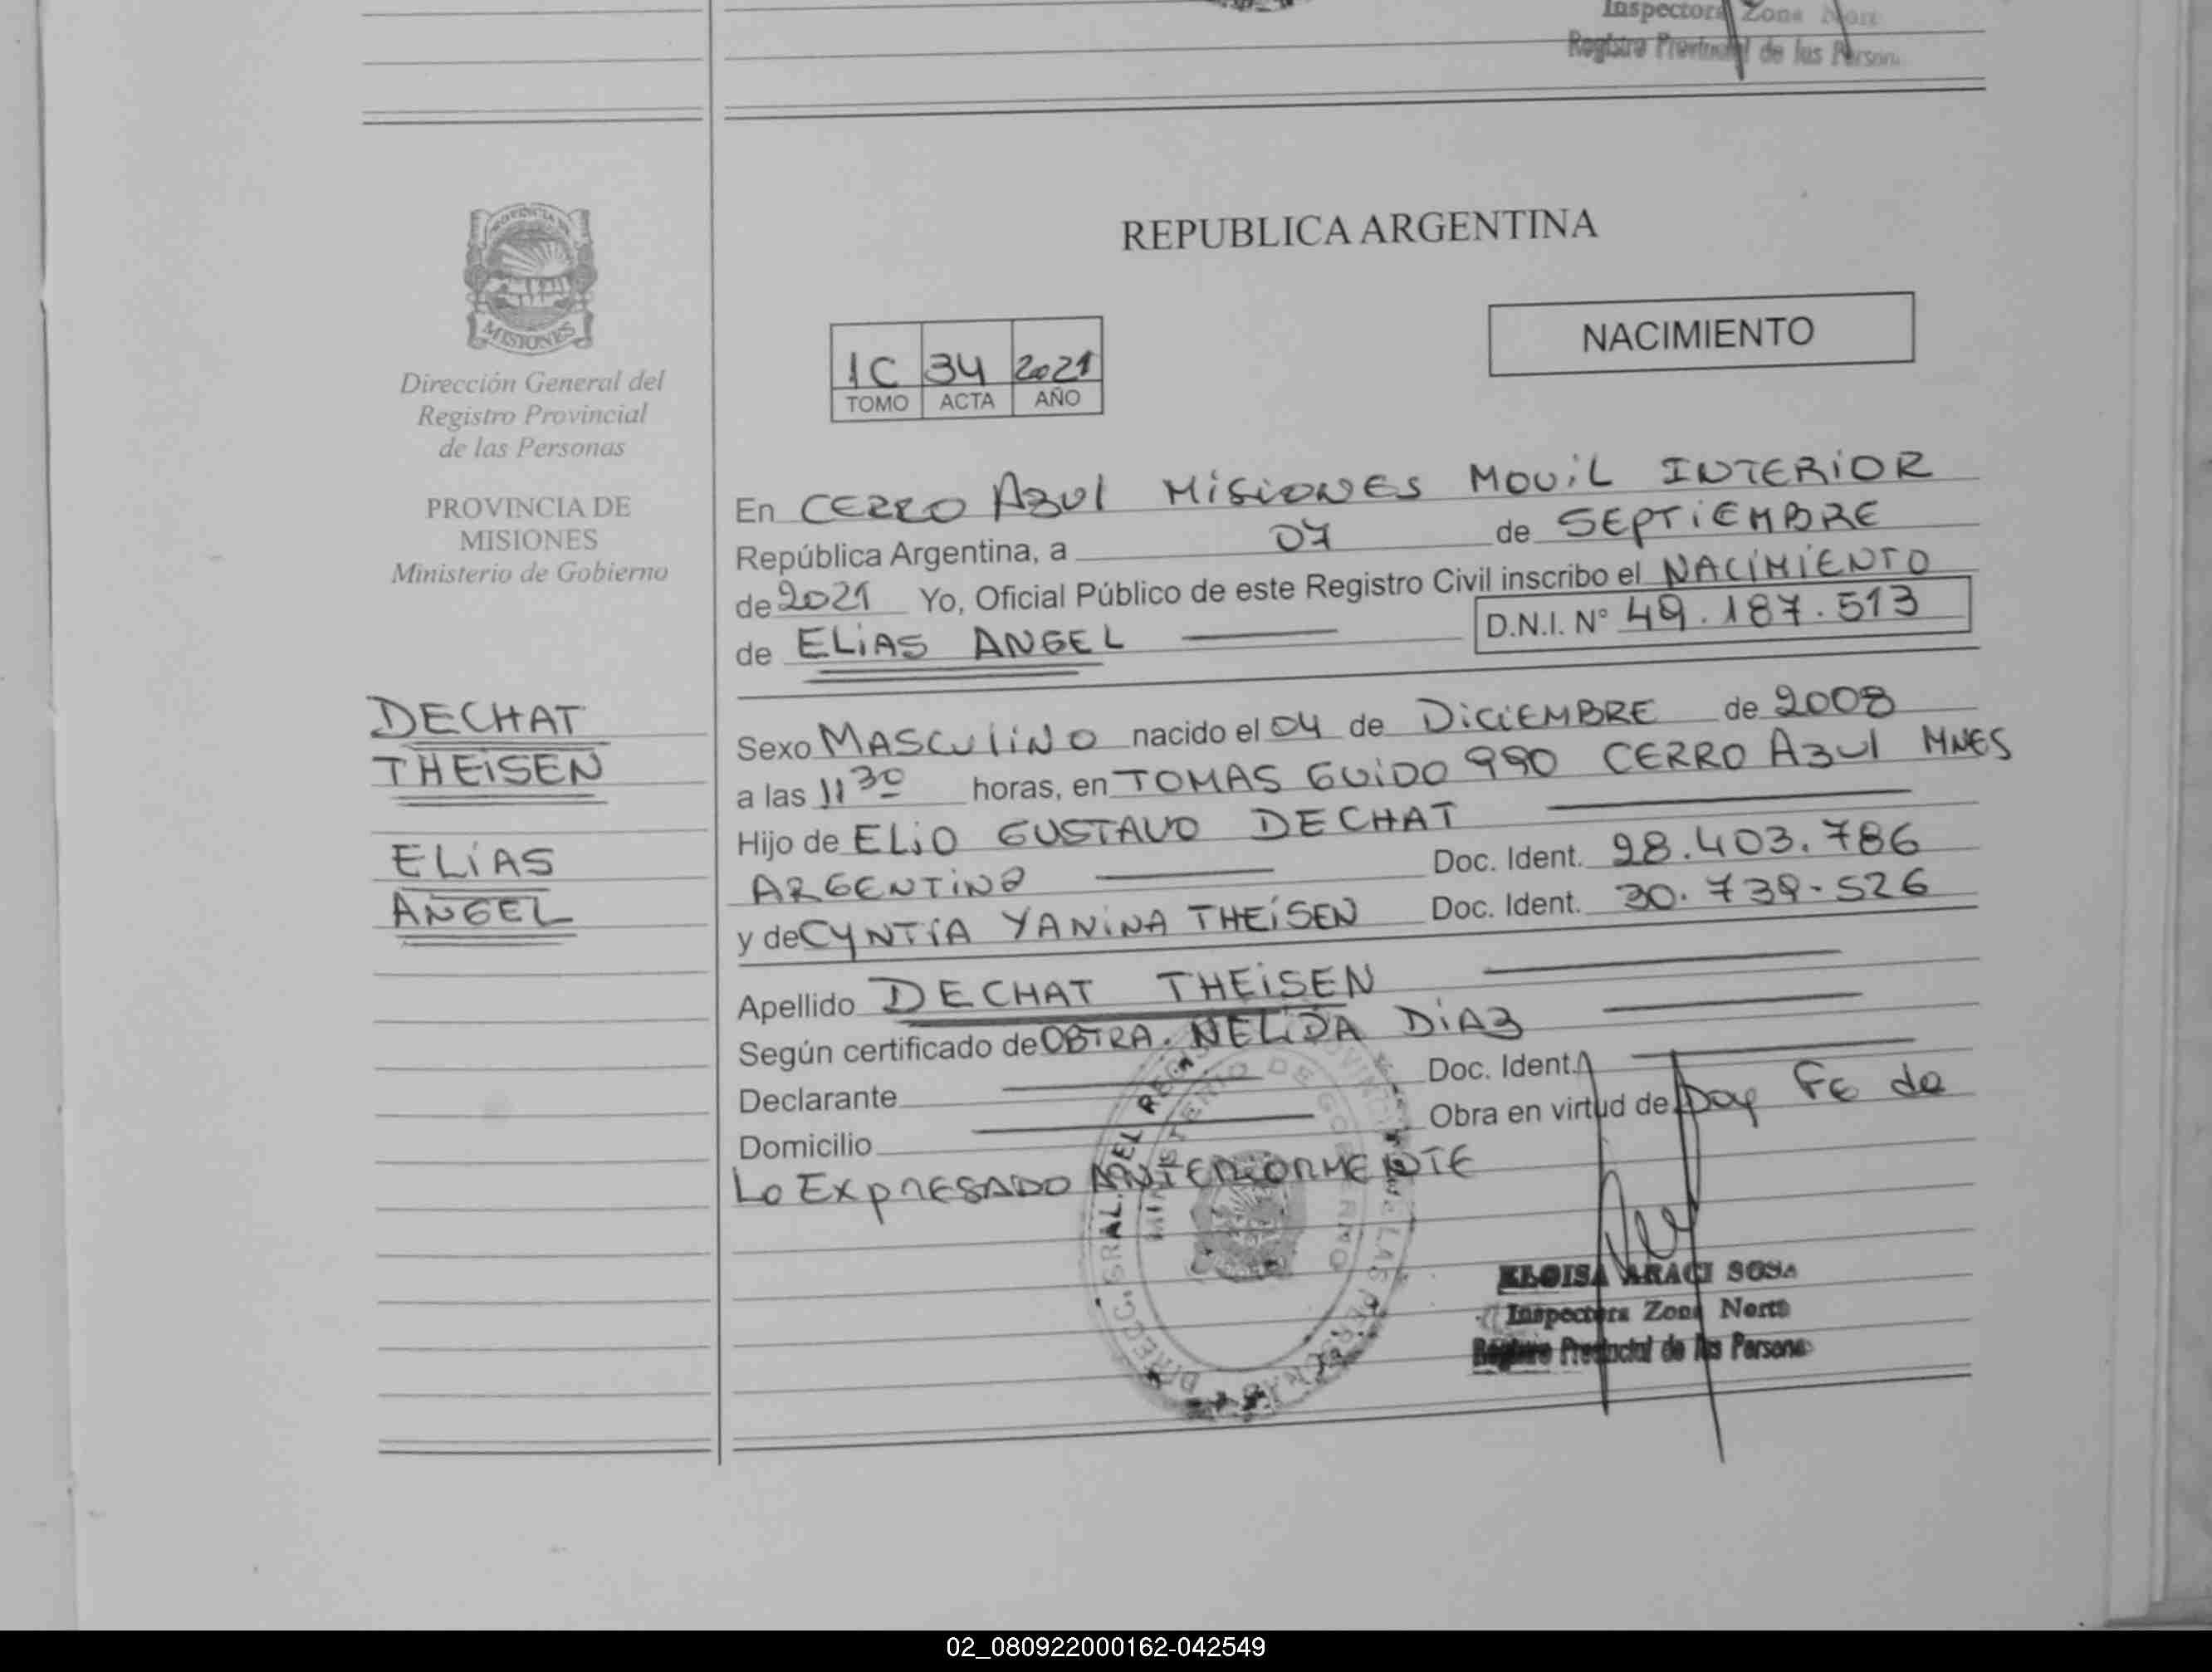 Inspectora Zona Nort
Registro Provincial de las Person
REPUBLICA ARGENTINA
MISIONES
Dirección General del
Registro Provincial
de las Personas
PROVINCIA DE
MISIONES
Ministerio de Gobierno
NACIMIENTO
1C 34 2021
TOMO ACTA AÑO
En CERRO AZUL MISIONES MOVIL INTERIOR
República Argentina, a 07 de SEPTIEMBRE
de 2021 Yo, Oficial Público de este Registro Civil inscribo el NACIMIENTO
de ELIAS ANGEL D.N.I. N° 49.187.513
DECHAT
THEISEN
ELIAS
ANGEL
Sexo MASCULINO nacido el 04 de DICIEMBRE de 2008
a las 11 30 horas, en TOMAS GUIDO 990 CERRO AZUL MNES
Hijo de ELIO GUSTAVO DECHAT
ARGENTINO Doc. Ident. 28.403.786
y de CYNTIA YANINA THEISEN Doc. Ident. 30.739.526
Apellido DECHAT THEISEN
Según certificado de OBTRA. NELIDA DIAZ
Declarante Doc. Ident.
Domicilio Obra en virtud de Doy FE de
Lo EXPRESADO ANTERIORMENTE
DIRECC. GRAL. DEL REG. PROVINCIAL DE LAS PERSONAS
MINISTERIO DE GOBIERNO
ELOISA ARACI SOSA
Inspectora Zona Norte
Registro Provincial de las Persona
02_080922000162-042549